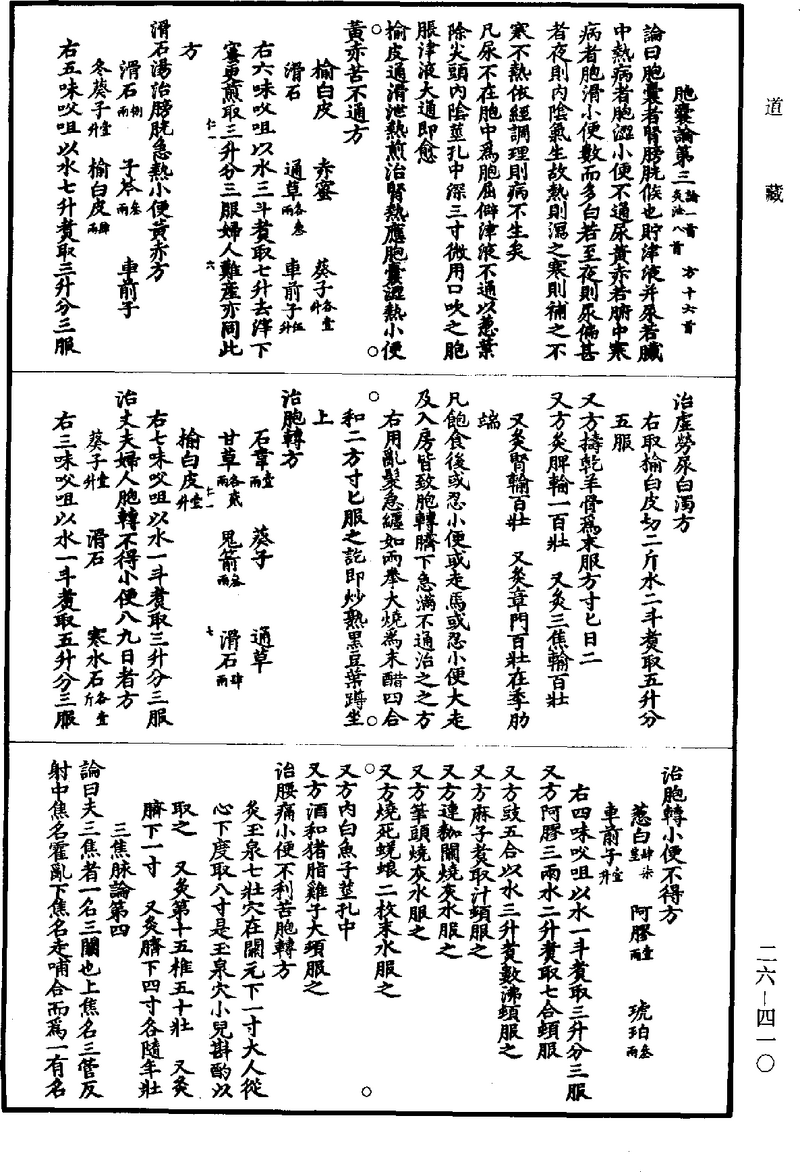 道藏
胞囊論第三論一首 方十六首 灸法八首
論曰胞囊者腎膀胱候也貯津液并尿若臟
中熱病者胞澀小便不通尿黃赤若腑中寒
病者胞滑小便數而多白若至夜則尿偏甚
者夜則內陰氣生故熱則瀉之寒則補之不
寒不熱依經調理則病不生矣
凡尿不在胞中爲胞屈僻津液不通以葱葉
除尖頭內陰莖孔中深三寸微用口吹之胞
脹津液大通即愈
榆皮通滑泄熱煎治腎熱應胞囊澀熱小便
黃赤苦不通方
榆白皮 赤蜜 葵子各壹升
滑石 通草各叁兩 車前子伍升
右六味㕮咀以水三斗煑取七升去滓下
蜜更煎取三升分三服婦人難產亦同此
方
仁一 六
滑石湯治膀胱急熱小便黃赤方
滑石捌兩 子芩叁兩 車前子
冬葵子壹升 榆白皮肆兩
右五味㕮咀以水七升煑取三升分三服
治虛勞尿白濁方
右取榆白皮切二斤水二斗煑取五升分
五服
又方擣乾羊骨爲末服方寸匕日二
又方灸脾輸一百壯 又灸三焦輸百壯
又灸腎輸百壯 又灸章門百壯在季肋
端
凡飽食後或忍小便或走馬或忍小便大走
及入房皆致胞轉臍下急滿不通治之之方
右用亂髮急纏如兩拳大燒爲末醋四合
和二方寸匕服之訖即炒熟黑豆葉蹲坐
上
治胞轉方
石韋壹兩 葵子 通草
甘草各貳兩 鬼箭叁兩 滑石肆兩
仁一 七
榆白皮壹升
右七味㕮咀以水一斗煑取三升分三服
治丈夫婦人胞轉不得小便八九日者方
葵子壹升 滑石 寒水石各壹斤
右三味㕮咀以水一斗煑取五升分三服
治胞轉小便不得方
葱白肆柒莖 阿膠壹兩 琥珀叁兩
車前子壹升
右四味㕮咀以水一斗煑取三升分三服
又方阿膠三兩水二升煑取七合頓服
又方豉五合以水三升煑數沸頓服之
又方麻子煑取汁頓服之
又方連枷關燒灰水服之
又方筆頭燒灰水服之
又方燒死蜣蜋二枚末水服之
又方內白魚子莖孔中
又方酒和猪脂雞子大頓服之
治腰痛小便不利苦胞轉方
灸玉泉七壯穴在關元下一寸大人從
心下度取八寸是玉泉穴小兒斟酌以
取之 又灸第十五椎五十壯 又灸
臍下一寸 又灸臍下四寸各隨年壯
三焦脉論第四
論曰夫三焦者一名三關也上焦名三管反
射中焦名霍亂下焦名走哺合而爲一有名
二六－四一〇